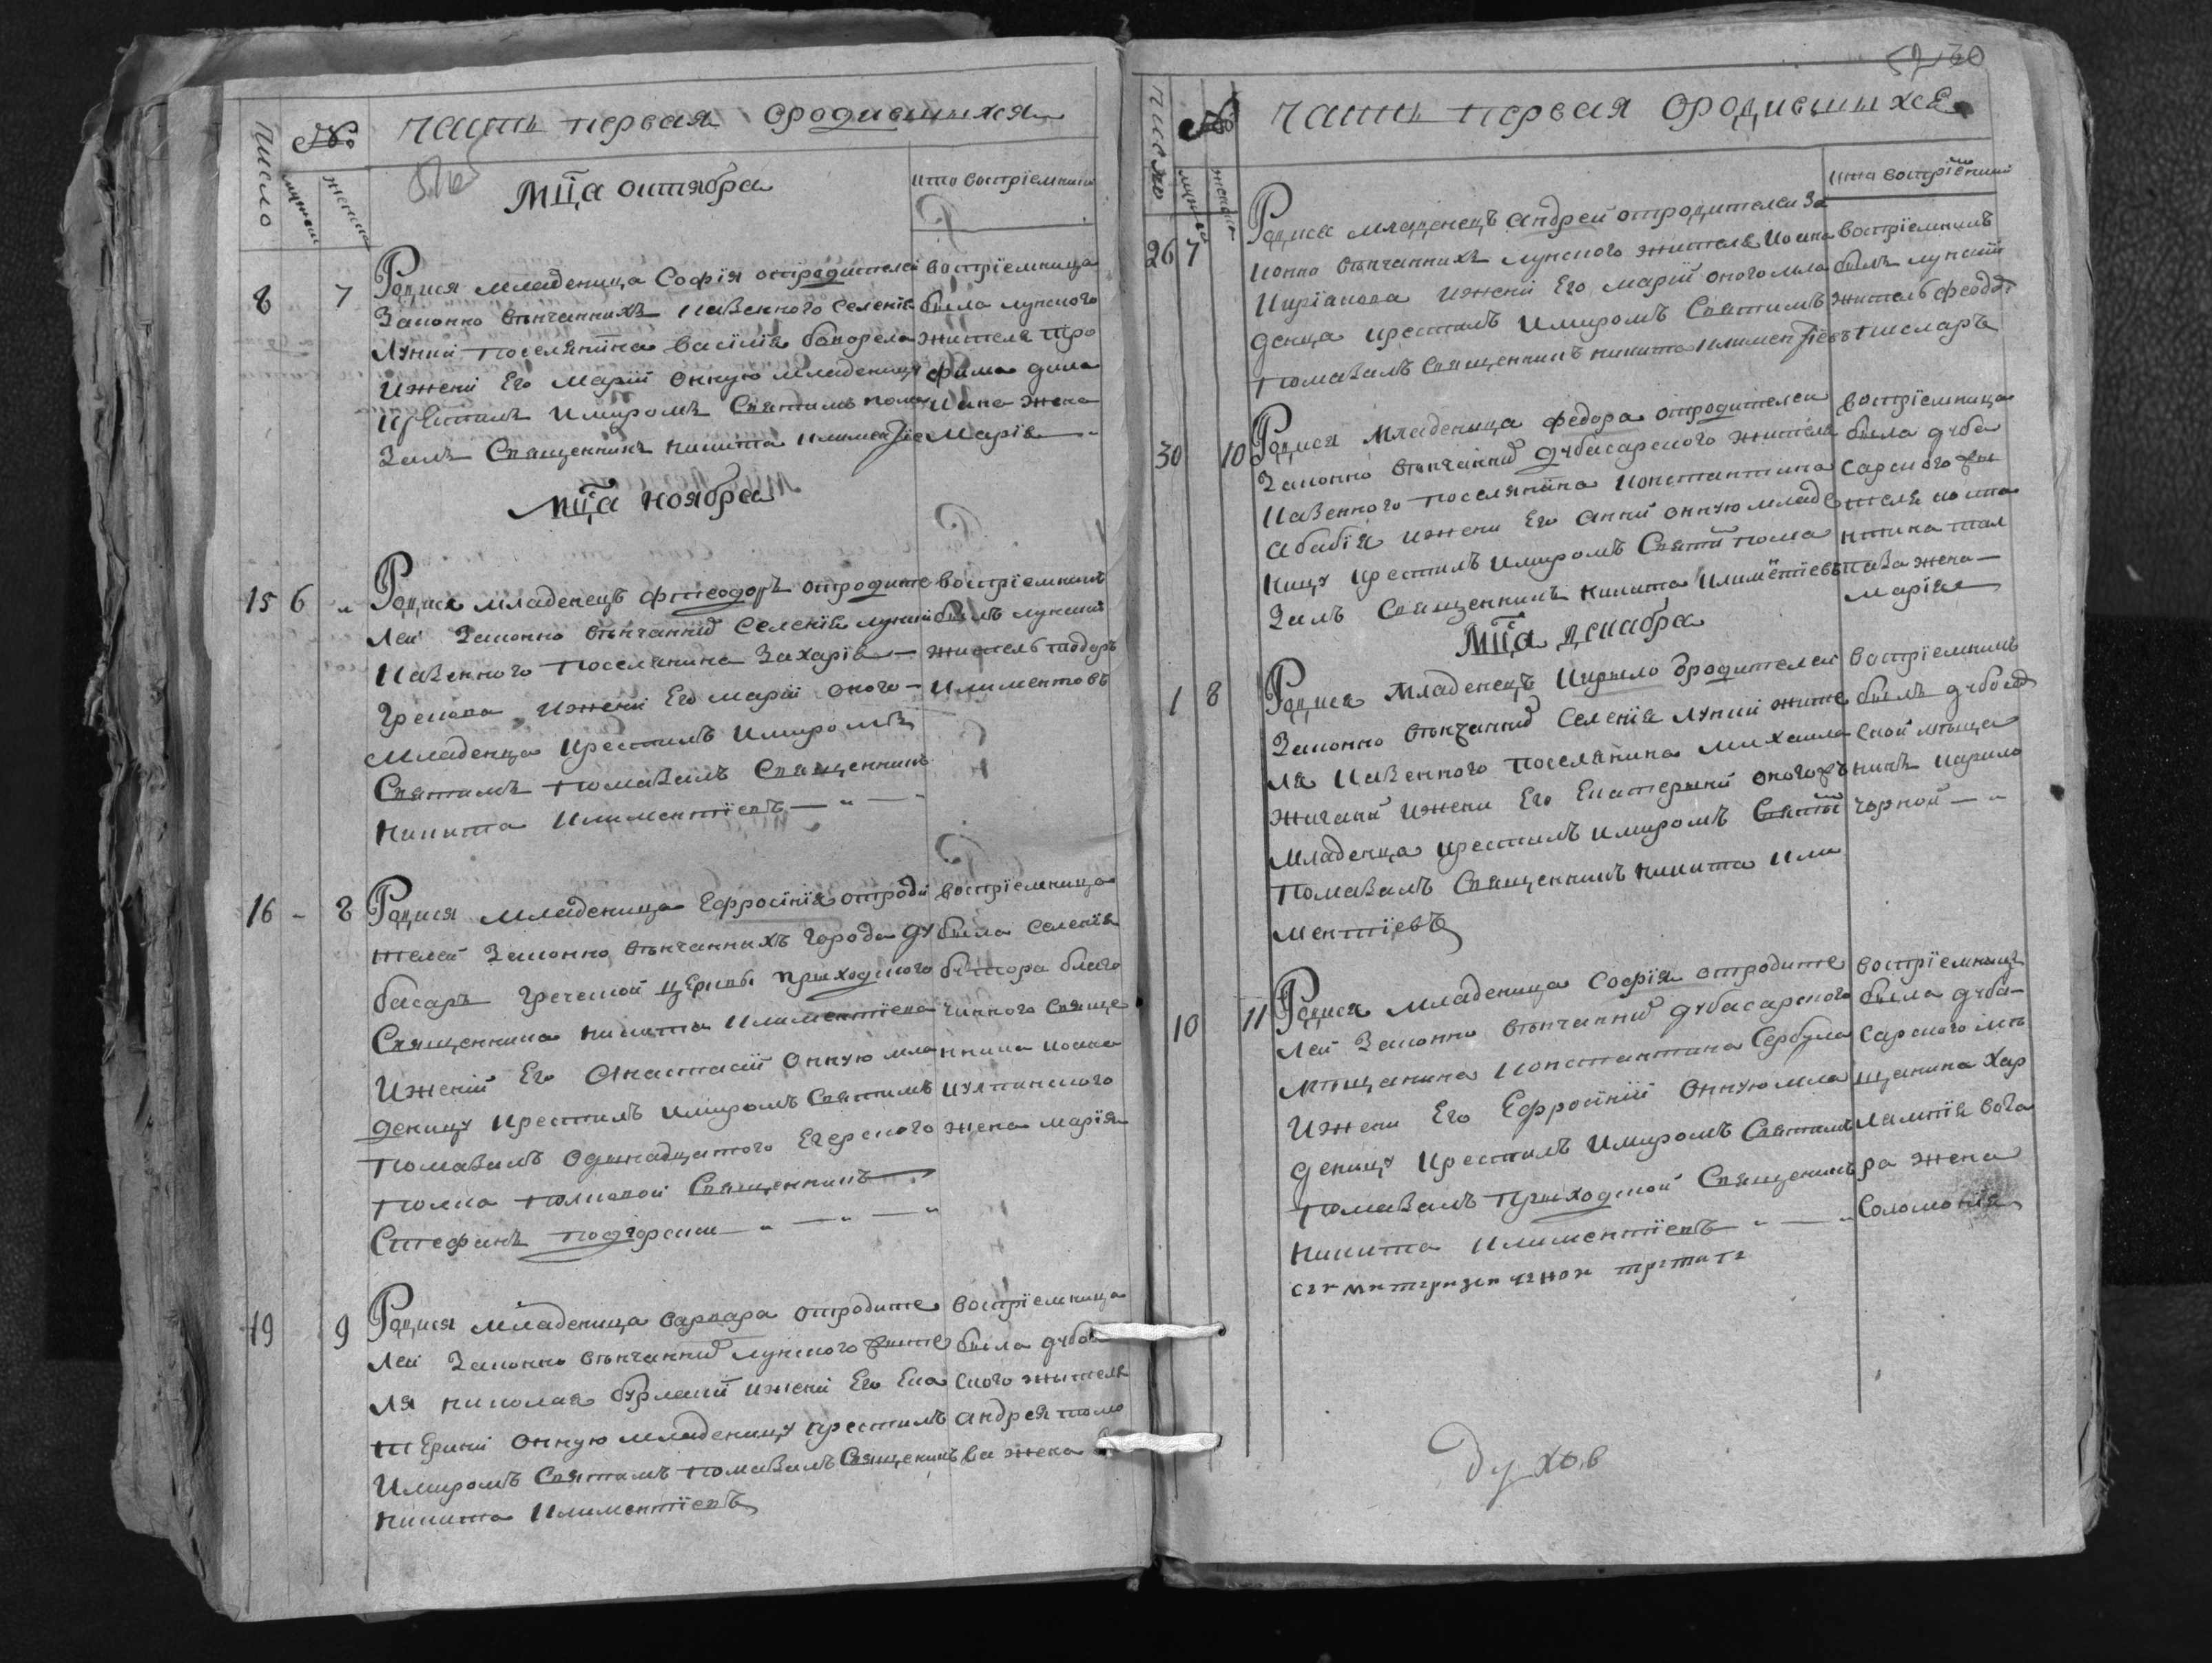 Число
№
мужеск
женска
Часть первая ородившихся
Мц̃а октября
кто воспріемники
8
7
Родися младеница Софія отродителей
Законно вѣнчанныхъ Казенного Селенія
Лункй поселянина Василія
Ижени Его Маріи Онную младеницу
Крестилъ Имиромъ Святимъ пома
Залъ Священникъ Никита Климентіе
воспріемница
была лунского
жителя Тро
фима дила
кина жена
Марія
Мц̃а ноября
15 6
Родися младенецъ Фтеодоръ отродите
лей Законно вѣнчанныхъ Селенія лункй
Казенного Поселянина Захарія
Грекова Ижени Его Маріи оного
Младенца Крестилъ Имиромъ
Святимъ Помазалъ Священникъ
Никита Климентіевъ
воспріемникъ
былъ лункий
житель тодоръ
Климентовъ
16 - 8
Родися Младеница Ефросінія отроди
телей Законно вѣнчаннихъ города ду
басаръ Греческой церкви приходского
Священника Никити Климентіева
Ижений Его Анастасій Онную мла
деницу Крестилъ Имиромъ Святимъ
Помазалъ Одинадцатого Егерского
Полка Полковой Священникъ
Стефанъ Подгорский
воспріемница
была Селенія
бутора благо
чинного Свяще
нника иоана
жена Марія
19
9
Родися младеница варвара отродите
лей Законно вѣнчанних лунского жите
ля николая Бурлакй ижени Его Ека
терини Онную младеницу крестилъ
Имиромъ Святимъ помазалъ Священикъ
Никита Климентіевъ
воспріемница
была дубо
ского жителя
андрея томо
ва жена
30
Число
№
мужеск
женска
Часть первая ородившихся
кто воспріемники
26 7
Родися младенецъ андрей отродителей За
конно вѣнчанныхъ лунского жителя Иоана
Киріакова Ижени Его Маріи оного мла
денца крестилъ Имиромъ Святимъ
Помазалъ Священникъ Никита Климентіевъ
воспріемникъ
былъ лункий
житель феодо
тисларъ
30
10
Родися Младеница Федора отродителей
Законно вѣнчанних дубасарского жителя
Казенного поселянина Константина
Абабія ижени Его Анни онную младе
ницу крестилъ Имиромъ Святим пома
Залъ Священникъ Никита Климентіевъ
воспріемница
была дуба
сарского жи
теля конста
нтина
жена
Марія
Мц̃а декабра
1 8
Родися Младенецъ Кирило ѿродителей
Законно вѣнчанних Селенія Лункй жите
ля Казенного поселянина Михаила
Ижени Его Екатерини оного
Младенца Крестилъ Имиромъ Святы
Помазалъ Священникъ Никита Кли
ментіевъ
воспріемникъ
былъ дубосар
ской мѣща
нинъ кирило
чорной
10
11
Родися Младеница Софія отродите
лей Законно вѣнчанних дубасарского
мѣщанина Константина Сербула
Ижени Его Ефросіній Онную мла
деницу Крестилъ Имиромъ Святимъ
Помазалъ Приходской Священикъ
Никита Климентіевъ
воспріемница
была дуба
сарского мѣ
щанина Хар
лампія бога
ра жена
Соломонія
духов